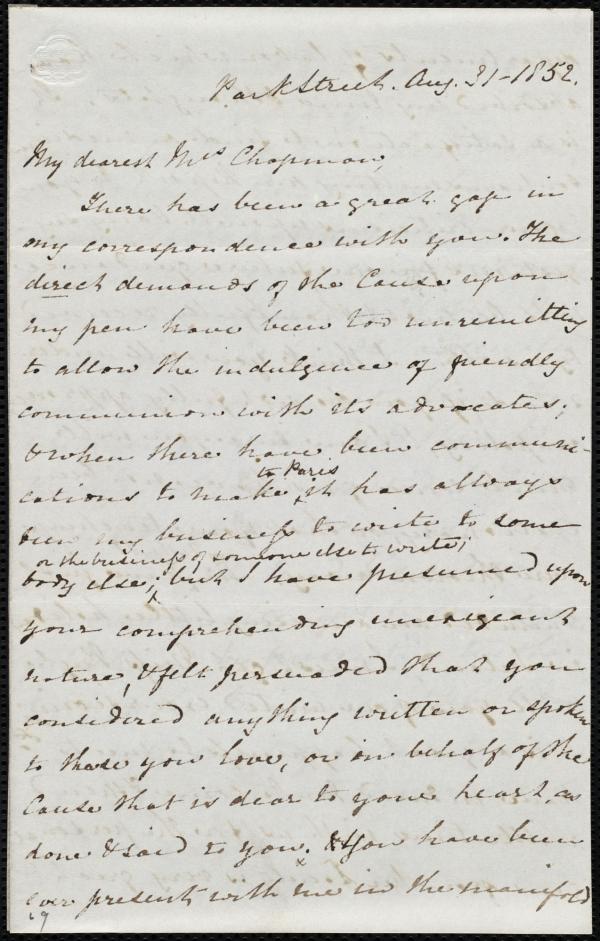 Park Street. Aug. 31 - 1852.
My dearest Mrs Chapman,
There has been a great gap in
my correspondence with you. The
direct demands of the Cause upon
my pen have been too unremitting
to allow the indulgence of friendly
communion with its advocates;
& when there have been communi-
to Paris
cations to make, it has always
been my business to write to some
or the business of someone else to write;
body else; but I have presumed upon
your comprehending unexigeant
nature, & felt persuaded that you
considered anything written or spoken
to those you love, or in behalf of the
Cause that is dear to your heart, as
done & said to you. & You have been
ever present with me in the manifold